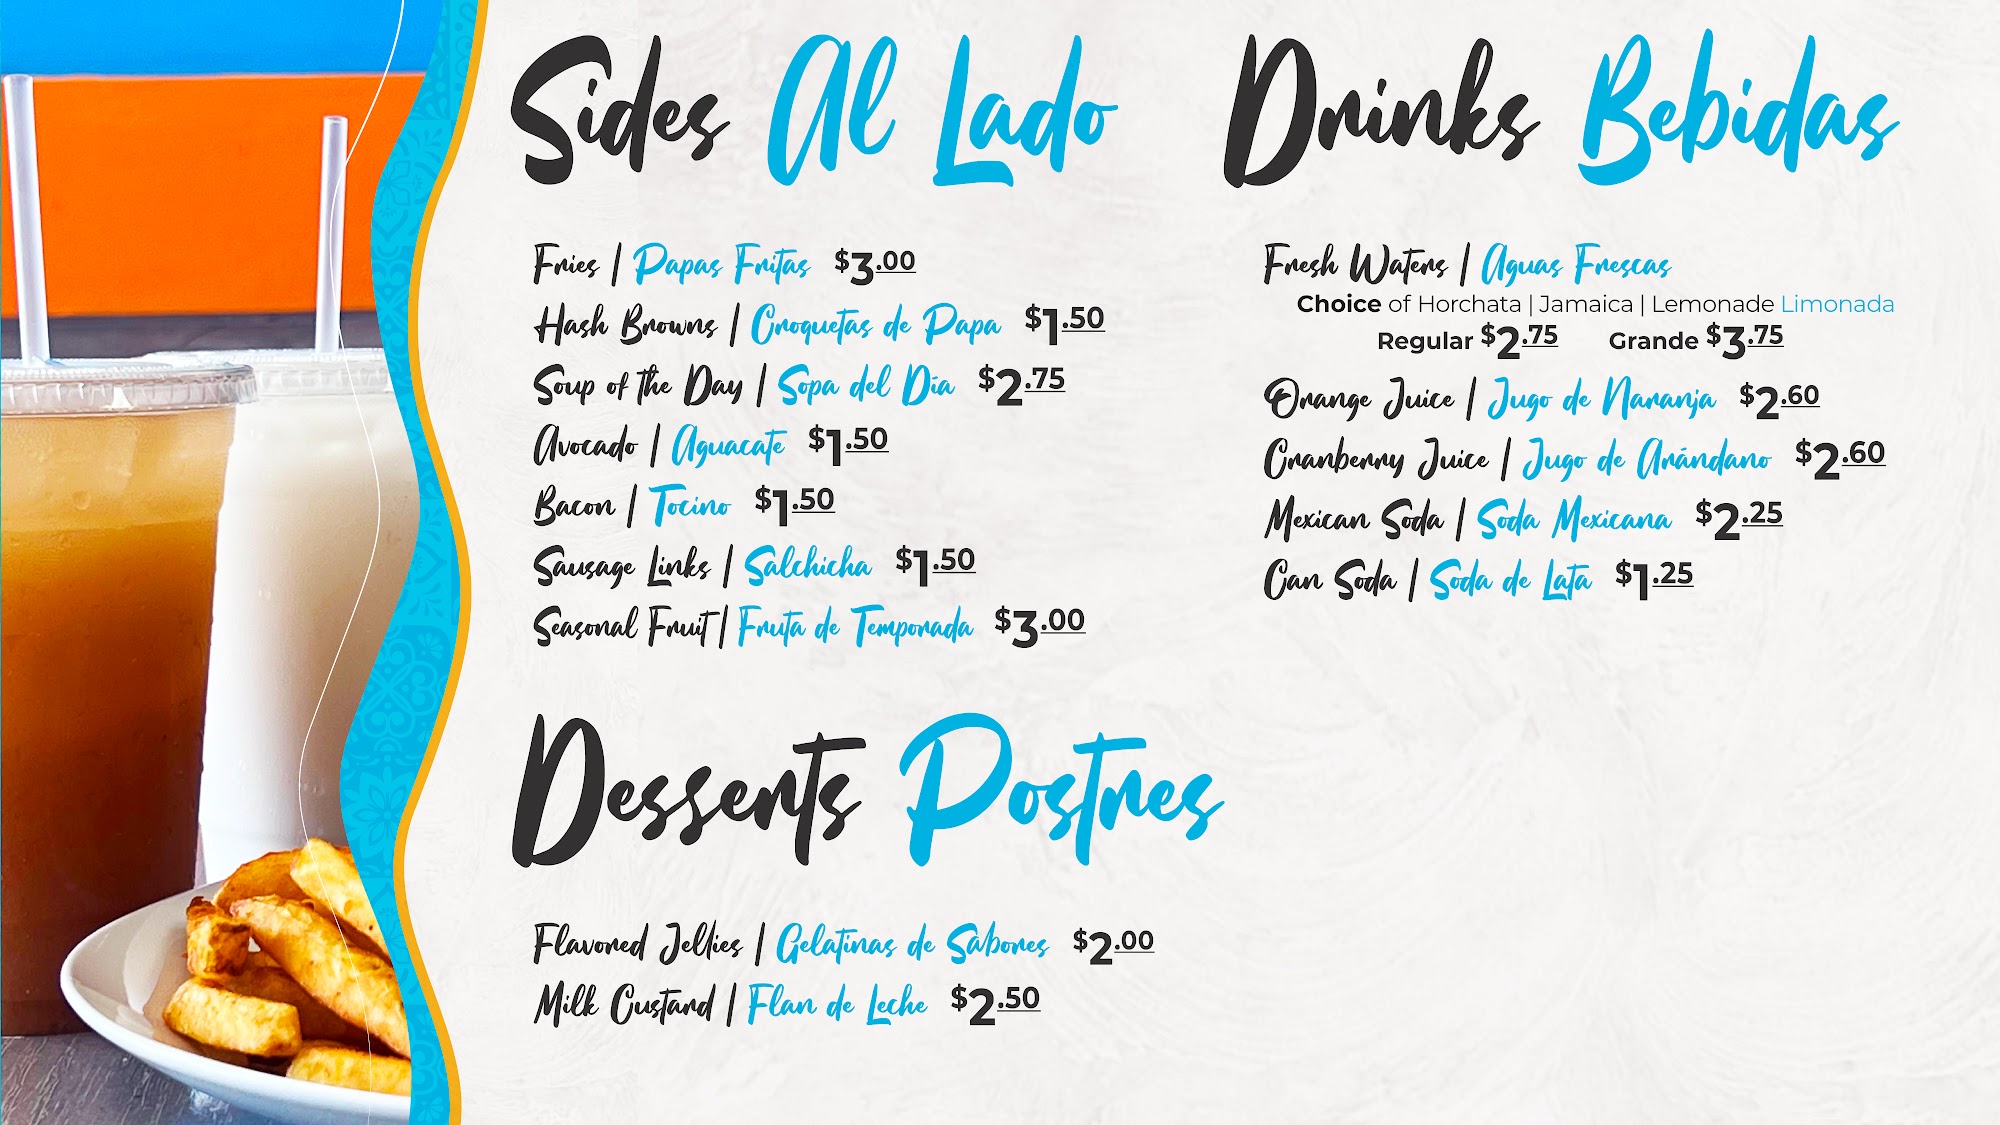 Sides Al Lado
Fries | Papas Fritas $3.00
Hash Browns | Croquetas de Papa $1.50
Soup of the Day | Sopa del Día $2.75
Avocado | Aguacate $1.50
Bacon | Tocino $1.50
Sausage Links | Salchicha $1.50
Seasonal Fruit | Fruta de Temporada $3.00
Desserts Postres
Flavored Jellies | Gelatinas de Sabores $2.00
Milk Custard | Flan de Leche $2.50
Drinks Bebidas
Fresh Waters | Aguas Frescas
Choice of Horchata | Jamaica | Lemonade Limonada
Regular $2.75 Grande $3.75
Orange Juice | Jugo de Naranja $2.60
Cranberry Juice | Jugo de Arándano $2.60
Mexican Soda | Soda Mexicana $2.25
Can Soda | Soda de Lata $1.25